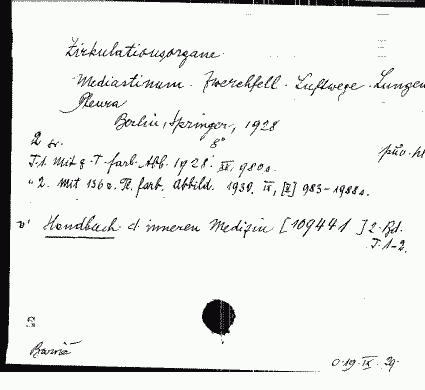 Zirkulationsorgane
Mediastinum. Zwerchfell. Luftwege. Lungen
Pleura
Berlin, Springer, 1928
8°
2 sv. pův. pl
T.1. Mit z. T. farb. Abb. 1928. IX, 980 s.
" 2. Mit 136 z. Tl. farb. Abbild. 1930. IX, [II] 983-1988 s.
v: Handbuch d. inneren Medizin [109441] 2. Bd.
T. 1-2.
0.19. IX. 39.